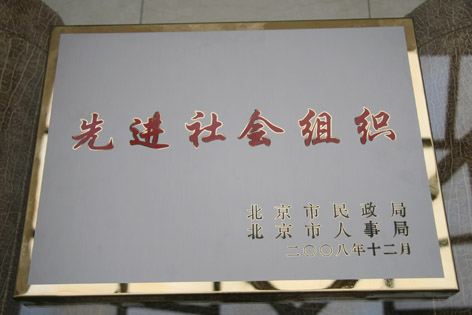 先进社会组织
北京市民政局
北京市人事局
二〇〇八年十二月